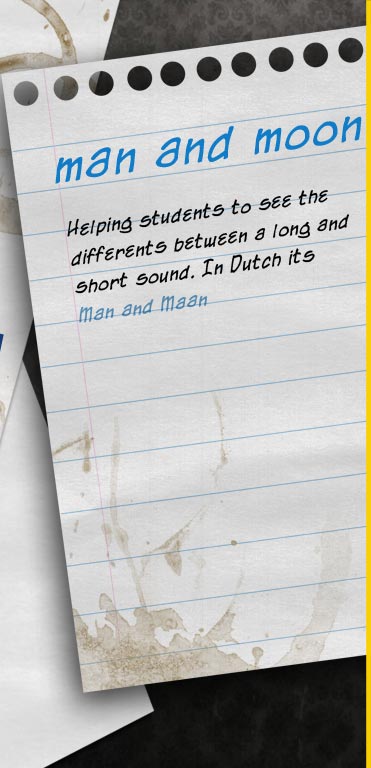 man and moon
Helping students to see the
differents between a long and
short sound. In Dutch its
Man and Maan